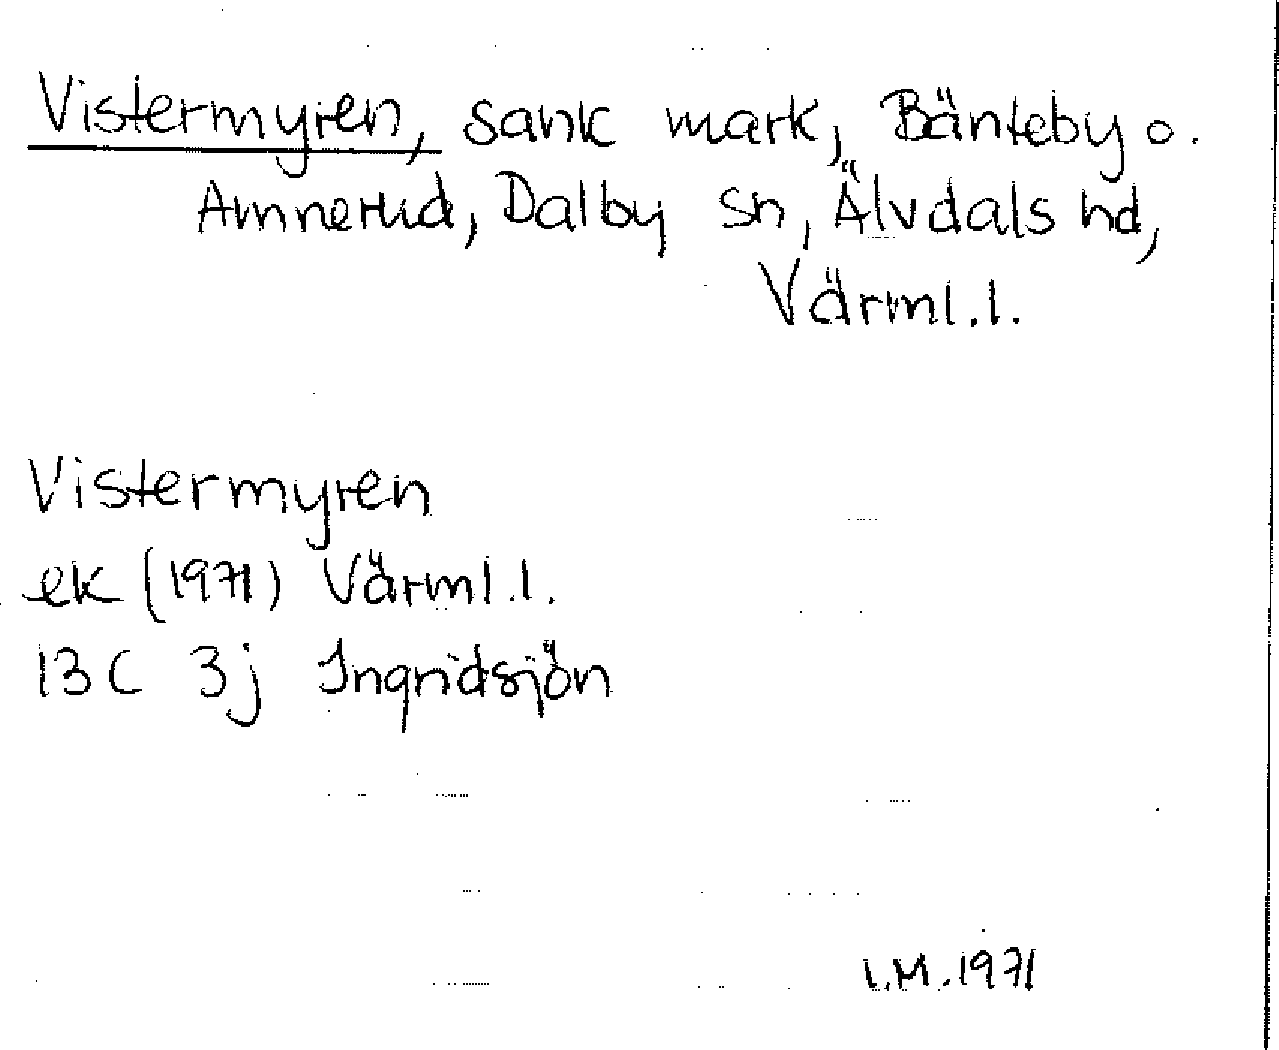 Vistermyren, sank mark, Bänteby o.
Amnerud, Dalby sn, Älvdals hd,
Värml.l.
Vistermyren
ek (1971) Värml.l.
13C 3j Ingridsjön
I.M.1971